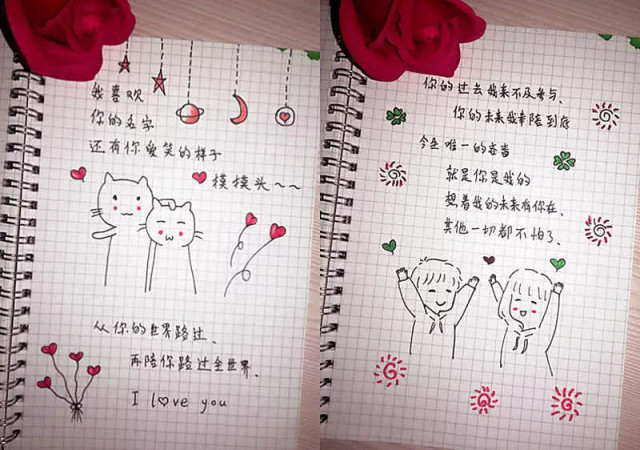 我喜欢
你的名字
还有你爱笑的样子
摸摸头~~
从你的世界路过、
再陪你路过全世界.
I love you
你的过去我来不及参与、
你的未来我奉陪到底
今生唯一的奢望
就是你是我的
想着我的未来有你在、
其他一切都不怕了、